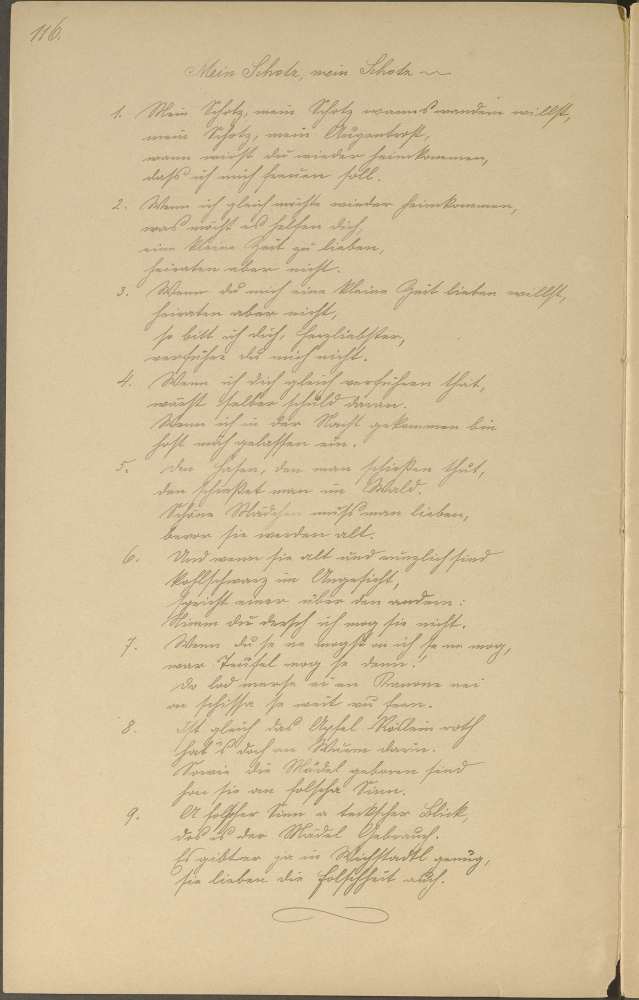 116.
Mein Schatz, mein Schatz
1. Mein Schatz, mein Schatz wanns wandern willst,
mein Schatz, mein Augentrost,
wann wirst du wieder heimkommen,
daß ich mich freuen soll.
2. Wenn ich gleich möchte wieder heimkommen,
was möcht es helfen dich,
eine kleine Zeit zu lieben,
heiraten aber nicht.
3. Wenn du mich eine kleine Zeit lieben willst,
heiraten aber nicht,
so bitt ich dich, herzliebster,
verführe du mich nicht.
4. Wenn ich dich gleich verführen that,
wärest selber schuld daran.
Wenn ich in der Nacht gekommen bin
hast mich gelassen ein.
5. Den Hasen, den man schießen thut,
den schießet man im Wald.
Schöne Mädchen muß man lieben,
bevor sie werden alt.
6. Und wenn sie alt und runzlich sind
kohlschwarz im Angesicht,
spricht einer über den andern:
Nimm du dersch ich mag sie nicht.
7. Wenn du se ne magst on ich se ne mag,
war Teufel mag se denn!
Do lod merse ei en Kanone nei
on schissa se weit
8. Ist gleich das Apfel Röslein roth
hat's doch an Wurm darin.
Sowie die Mädel geboren sind
hon sie an folscha Sinn.
9. A folscher Sinn a Blick,
dos is der Mädel Gebrauch.
Es gibt er ja in Wichstadtl genug,
sie lieben die Folschheit auch.